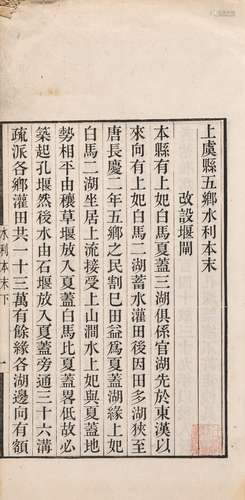 上虞縣五鄉水利本末
改設堰閘
本縣有上妃白馬夏蓋三湖俱係官湖先於東漢以
來向有上妃白馬二湖蓄水灌田後因田多湖狹至
唐長慶二年五鄉之民割巳田益爲夏蓋湖緣上妃
白馬二湖坐居上流接受上山澗水上妃與夏蓋地
勢相平由穰草堰放入夏蓋白馬比夏蓋畧低故必
築起孔堰然後水由石堰放入夏蓋旁通三十六溝
疏派各鄉灌田共一十三萬有餘緣各湖邊向有額
水利本末下
一